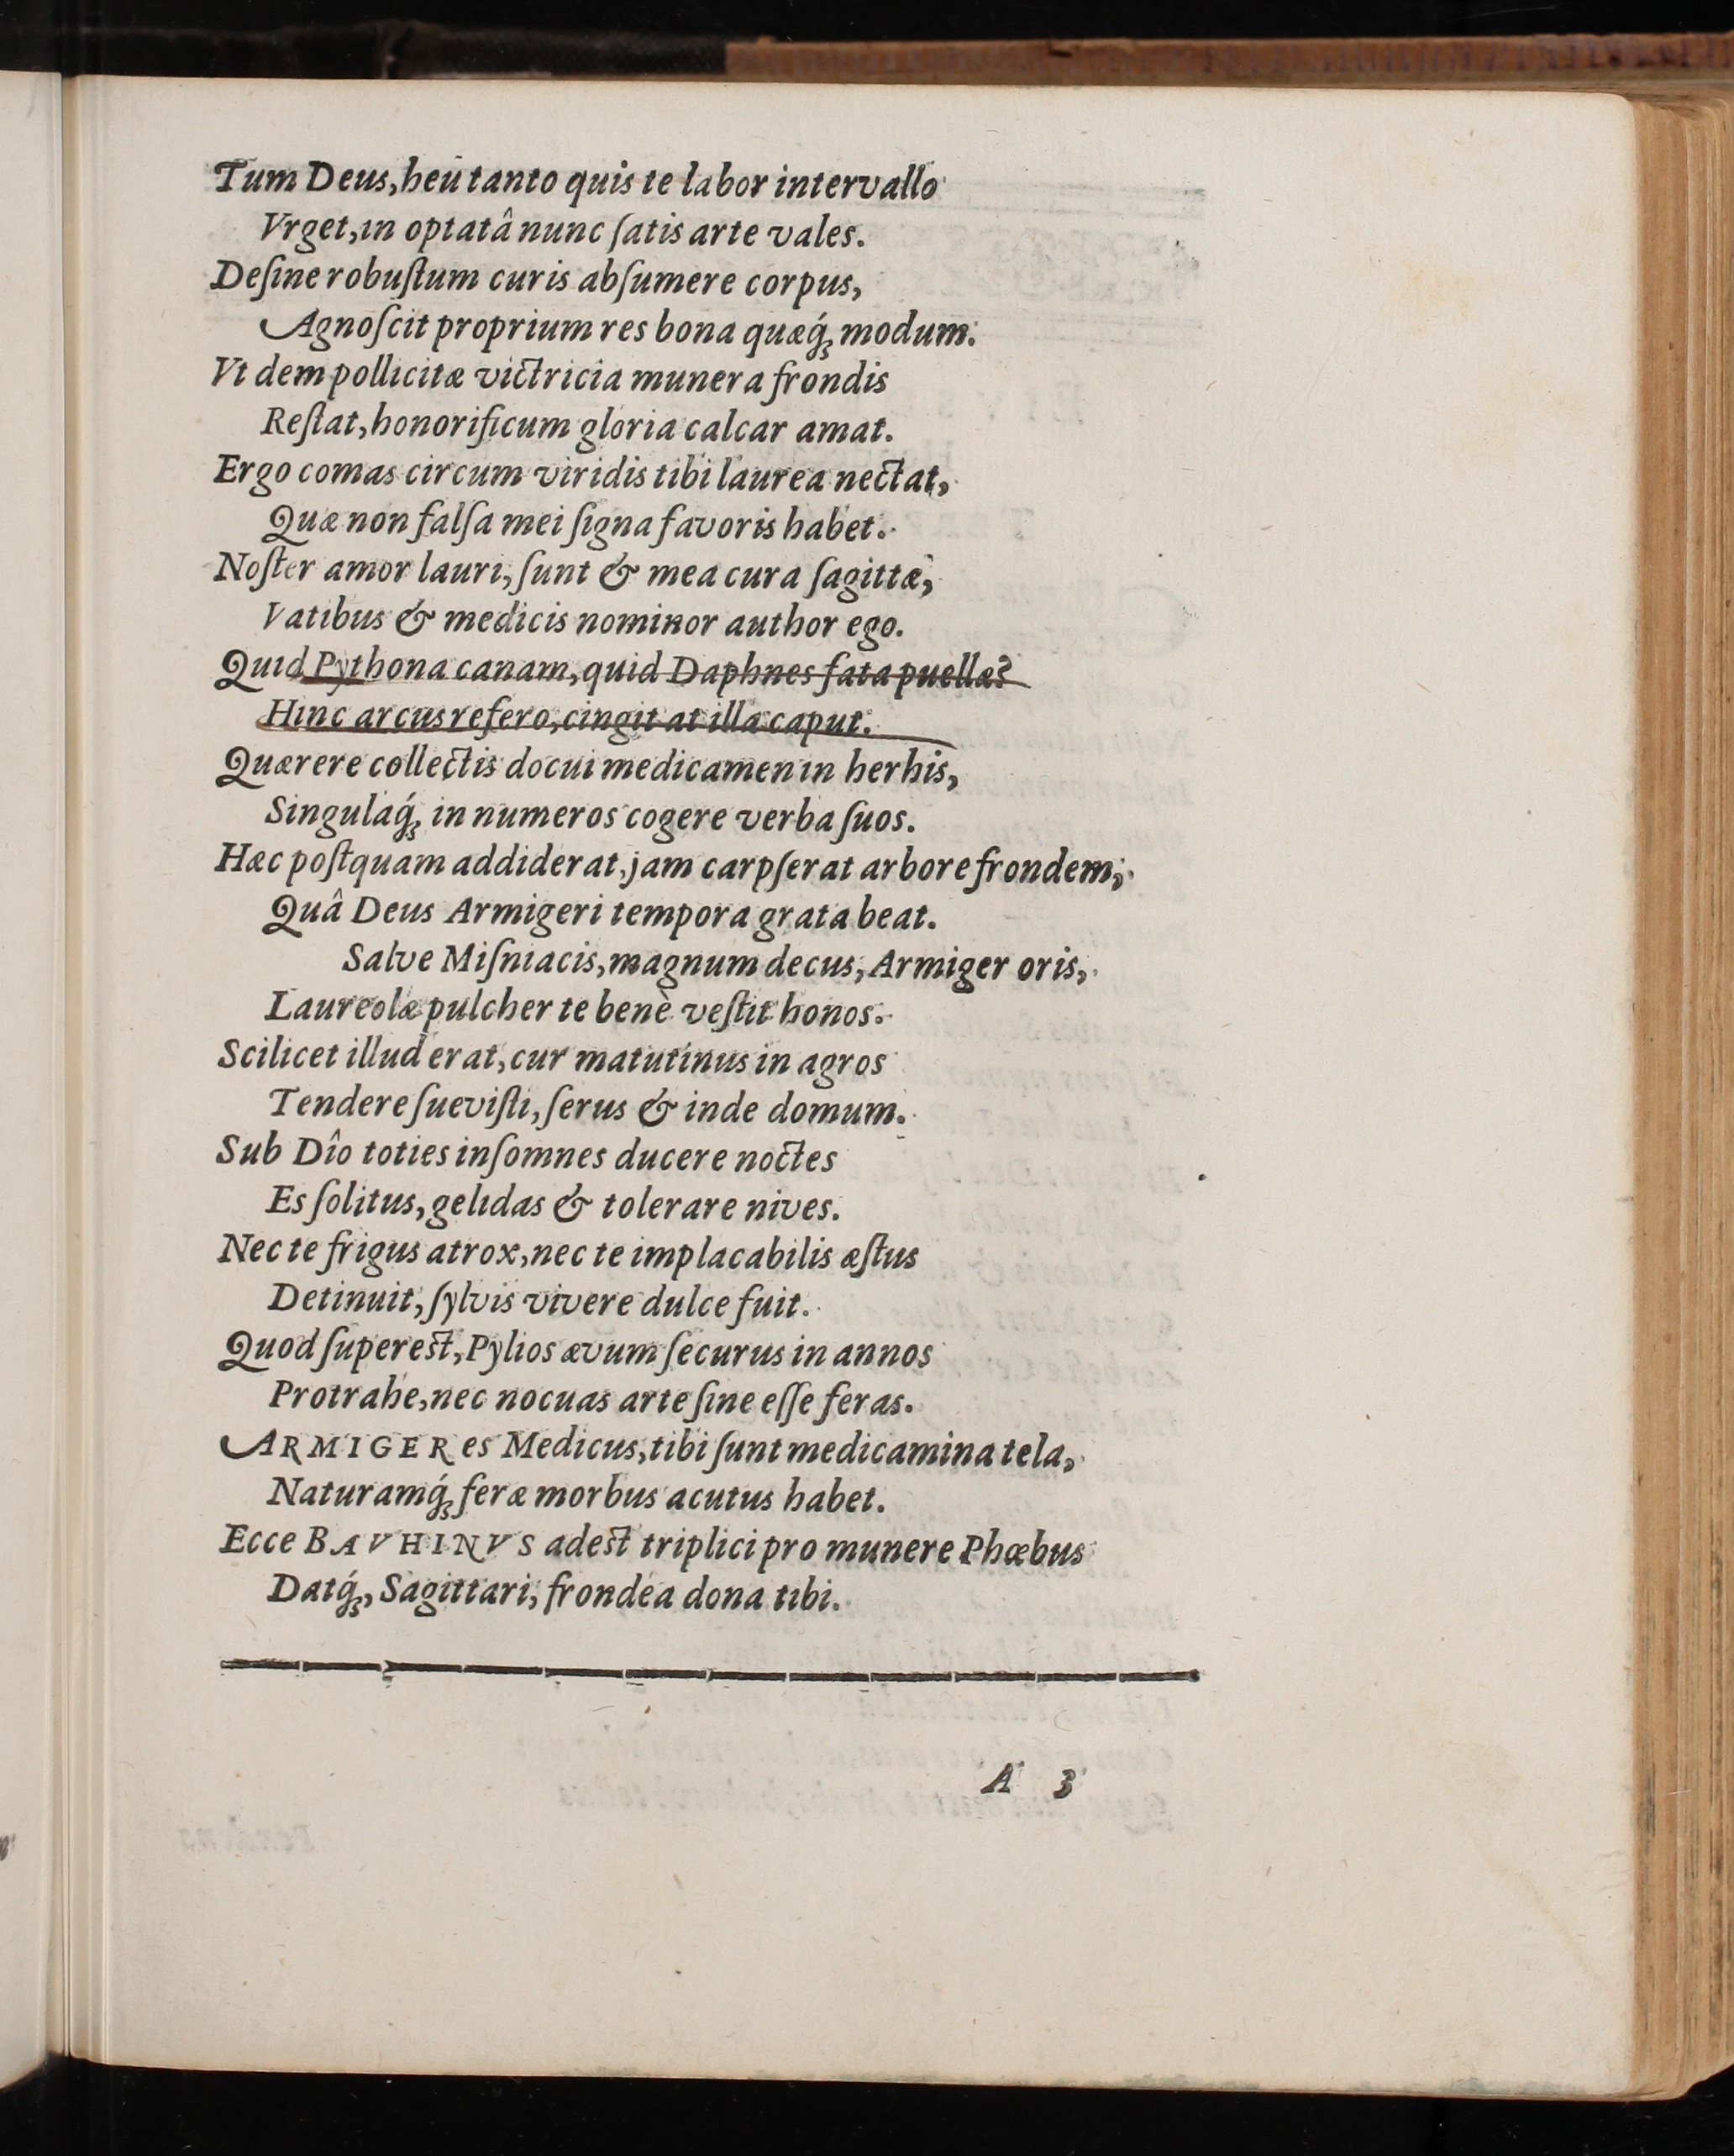 Tum Deus, heu tanto quis te labor intervallo
Vrget, in optatâ nunc ſatis arte vales.
Deſine robuſtum curis abſumere corpus,
Agnoſcit proprium res bona quæq́ꝫ modum.
Vt dem pollicitæ victricia munera frondis
Reſtat, honorificum gloria calcar amat.
Ergo comas circum viridis tibi laurea nectat,
Quæ non falſa mei ſigna favoris habet.
Noſter amor lauri, ſunt & mea cura ſagittæ,
Vatibus & medicis nominor author ego.
Quid Pythona canam, quid Daphnes fata puellæ?
Hinc arcus refero, cingit at illa caput.
Quærere collectis docui medicamen in herhis,
Singulaq́ꝫ in numeros cogere verba ſuos.
Hæc poſtquam addiderat, jam carpſerat arbore frondem,
Quâ Deus Armigeri tempora grata beat.
Salve Miſniacis, magnum decus, Armiger oris,
Laureolæ pulcher te benè veſtit honos.
Scilicet illud erat, cur matutinus in agros
Tendere ſueviſti, ſerus & inde domum.
Sub Dîo toties inſomnes ducere noctes
Es ſolitus, gelidas & tolerare nives.
Nec te frigus atrox, nec te implacabilis æſtus
Detinuit, ſylvis vivere dulce fuit.
Quod ſupereſt, Pylios ævum ſecurus in annos
Protrahe, nec nocuas arte ſine eſſe feras.
ARMIGER es Medicus, tibi ſunt medicamina tela,
Naturamq́ꝫ feræ morbus acutus habet.
Ecce BAVHINVS adeſt triplici pro munere Phœbus
Datq́ꝫ, Sagittari, frondea dona tibi.
A 3